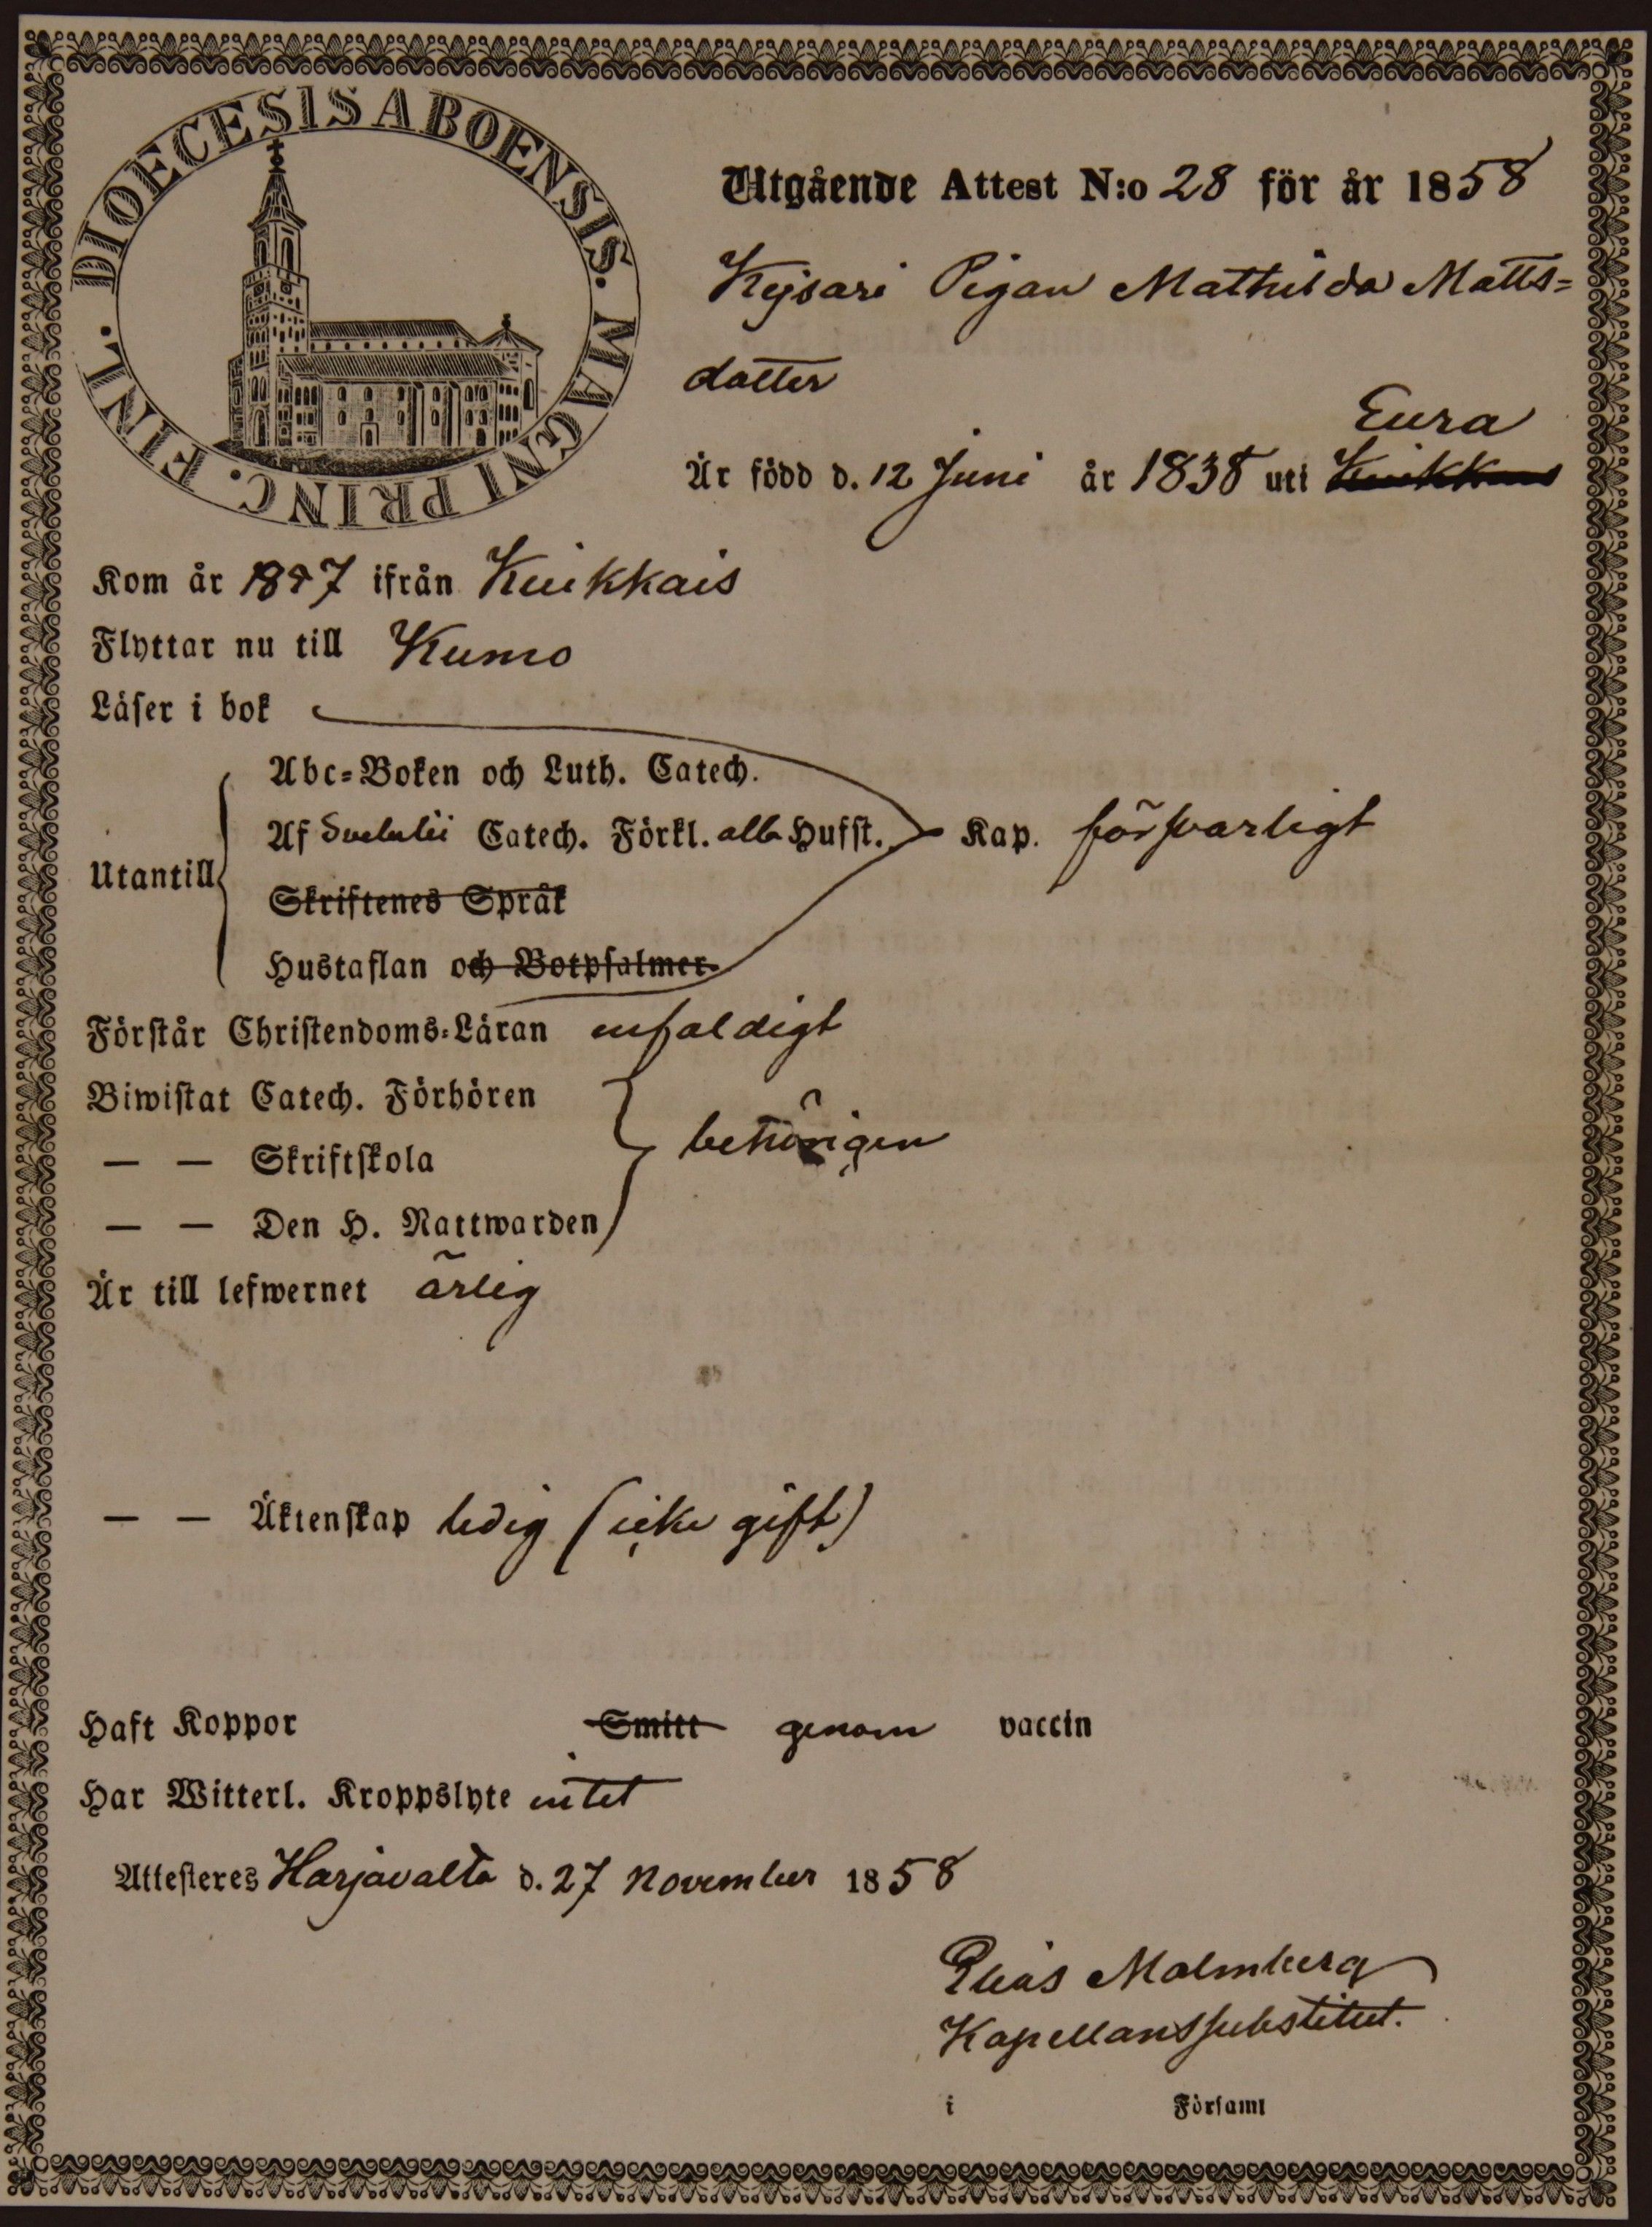 DIOECESIS ABOENSIS. MAGNI PRINC. FINL.
Utgående Attest N:o 28 för år 1858
Kejsari Pigan Mathilda Matts=
dotter
Eura
Är född d. 12 Juni år 1838 uti
Kom år 1847 ifrån Kuikkais
Flyttar nu till Kumo
Läser i bok
Abc=Boken och Luth. Catech.
Af Svebelii Catech. Förkl. alla Hufst. Kap. försvarligt
Utantill
Skriftenes Språk
Hustaflan och Botpsalmer.
Förstår Christendoms=Läran enfaldigt
Biwistat Catech. Förhören
— — Skriftskola behörigen
— — Den H. Nattwarden
Är till lefwernet ärlig
— — Äktenskap ledig (icke gift)
Haft Koppor Smitt genom vaccin
Har Witterl. Kroppslyte intet
Attesteres Harjavalta d. 27 November 1858
Elias Malmberg
Kapellanssubstitut.
i Församl